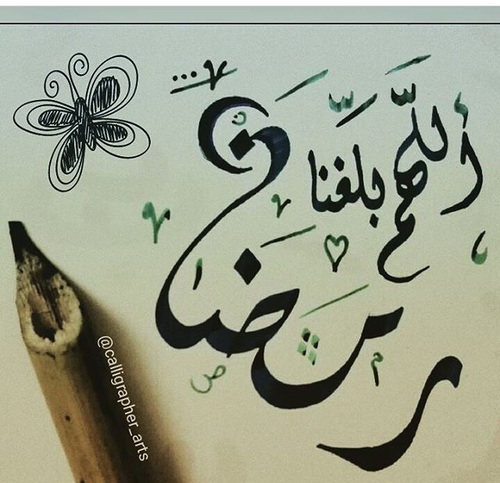 أللهم بلغنا
رمضان
@calligrapher_arts